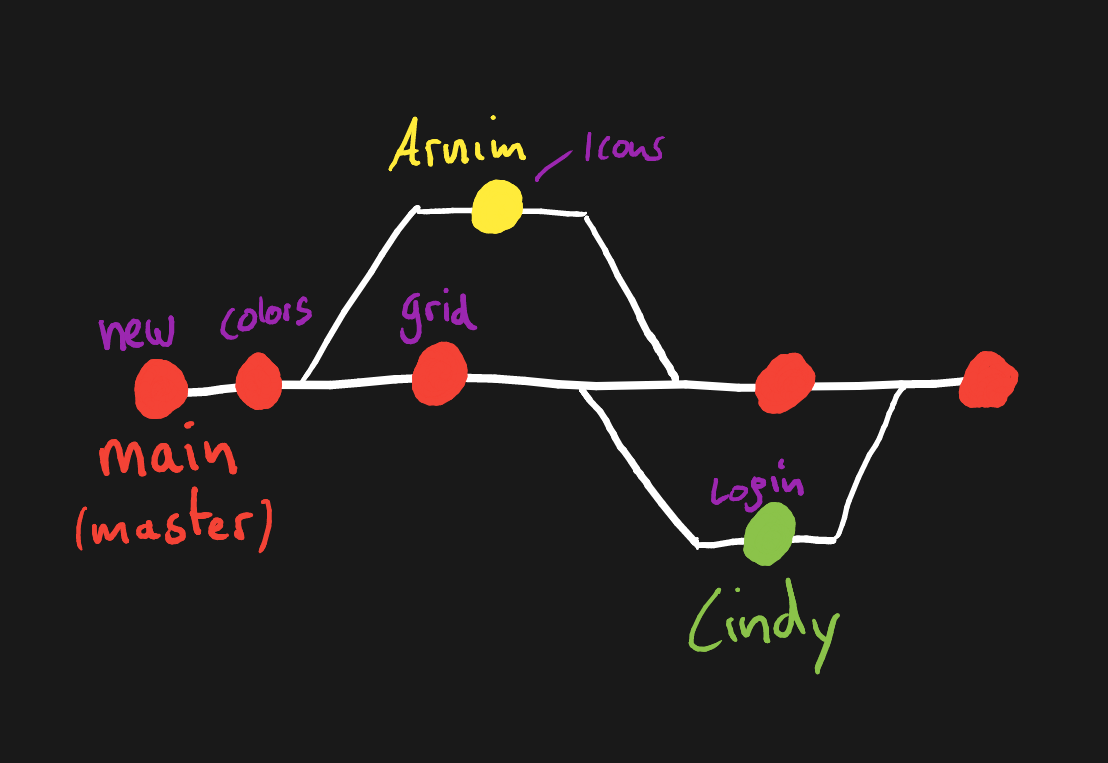 Arnim
Icons
new
colors
grid
main
(master)
Login
Cindy